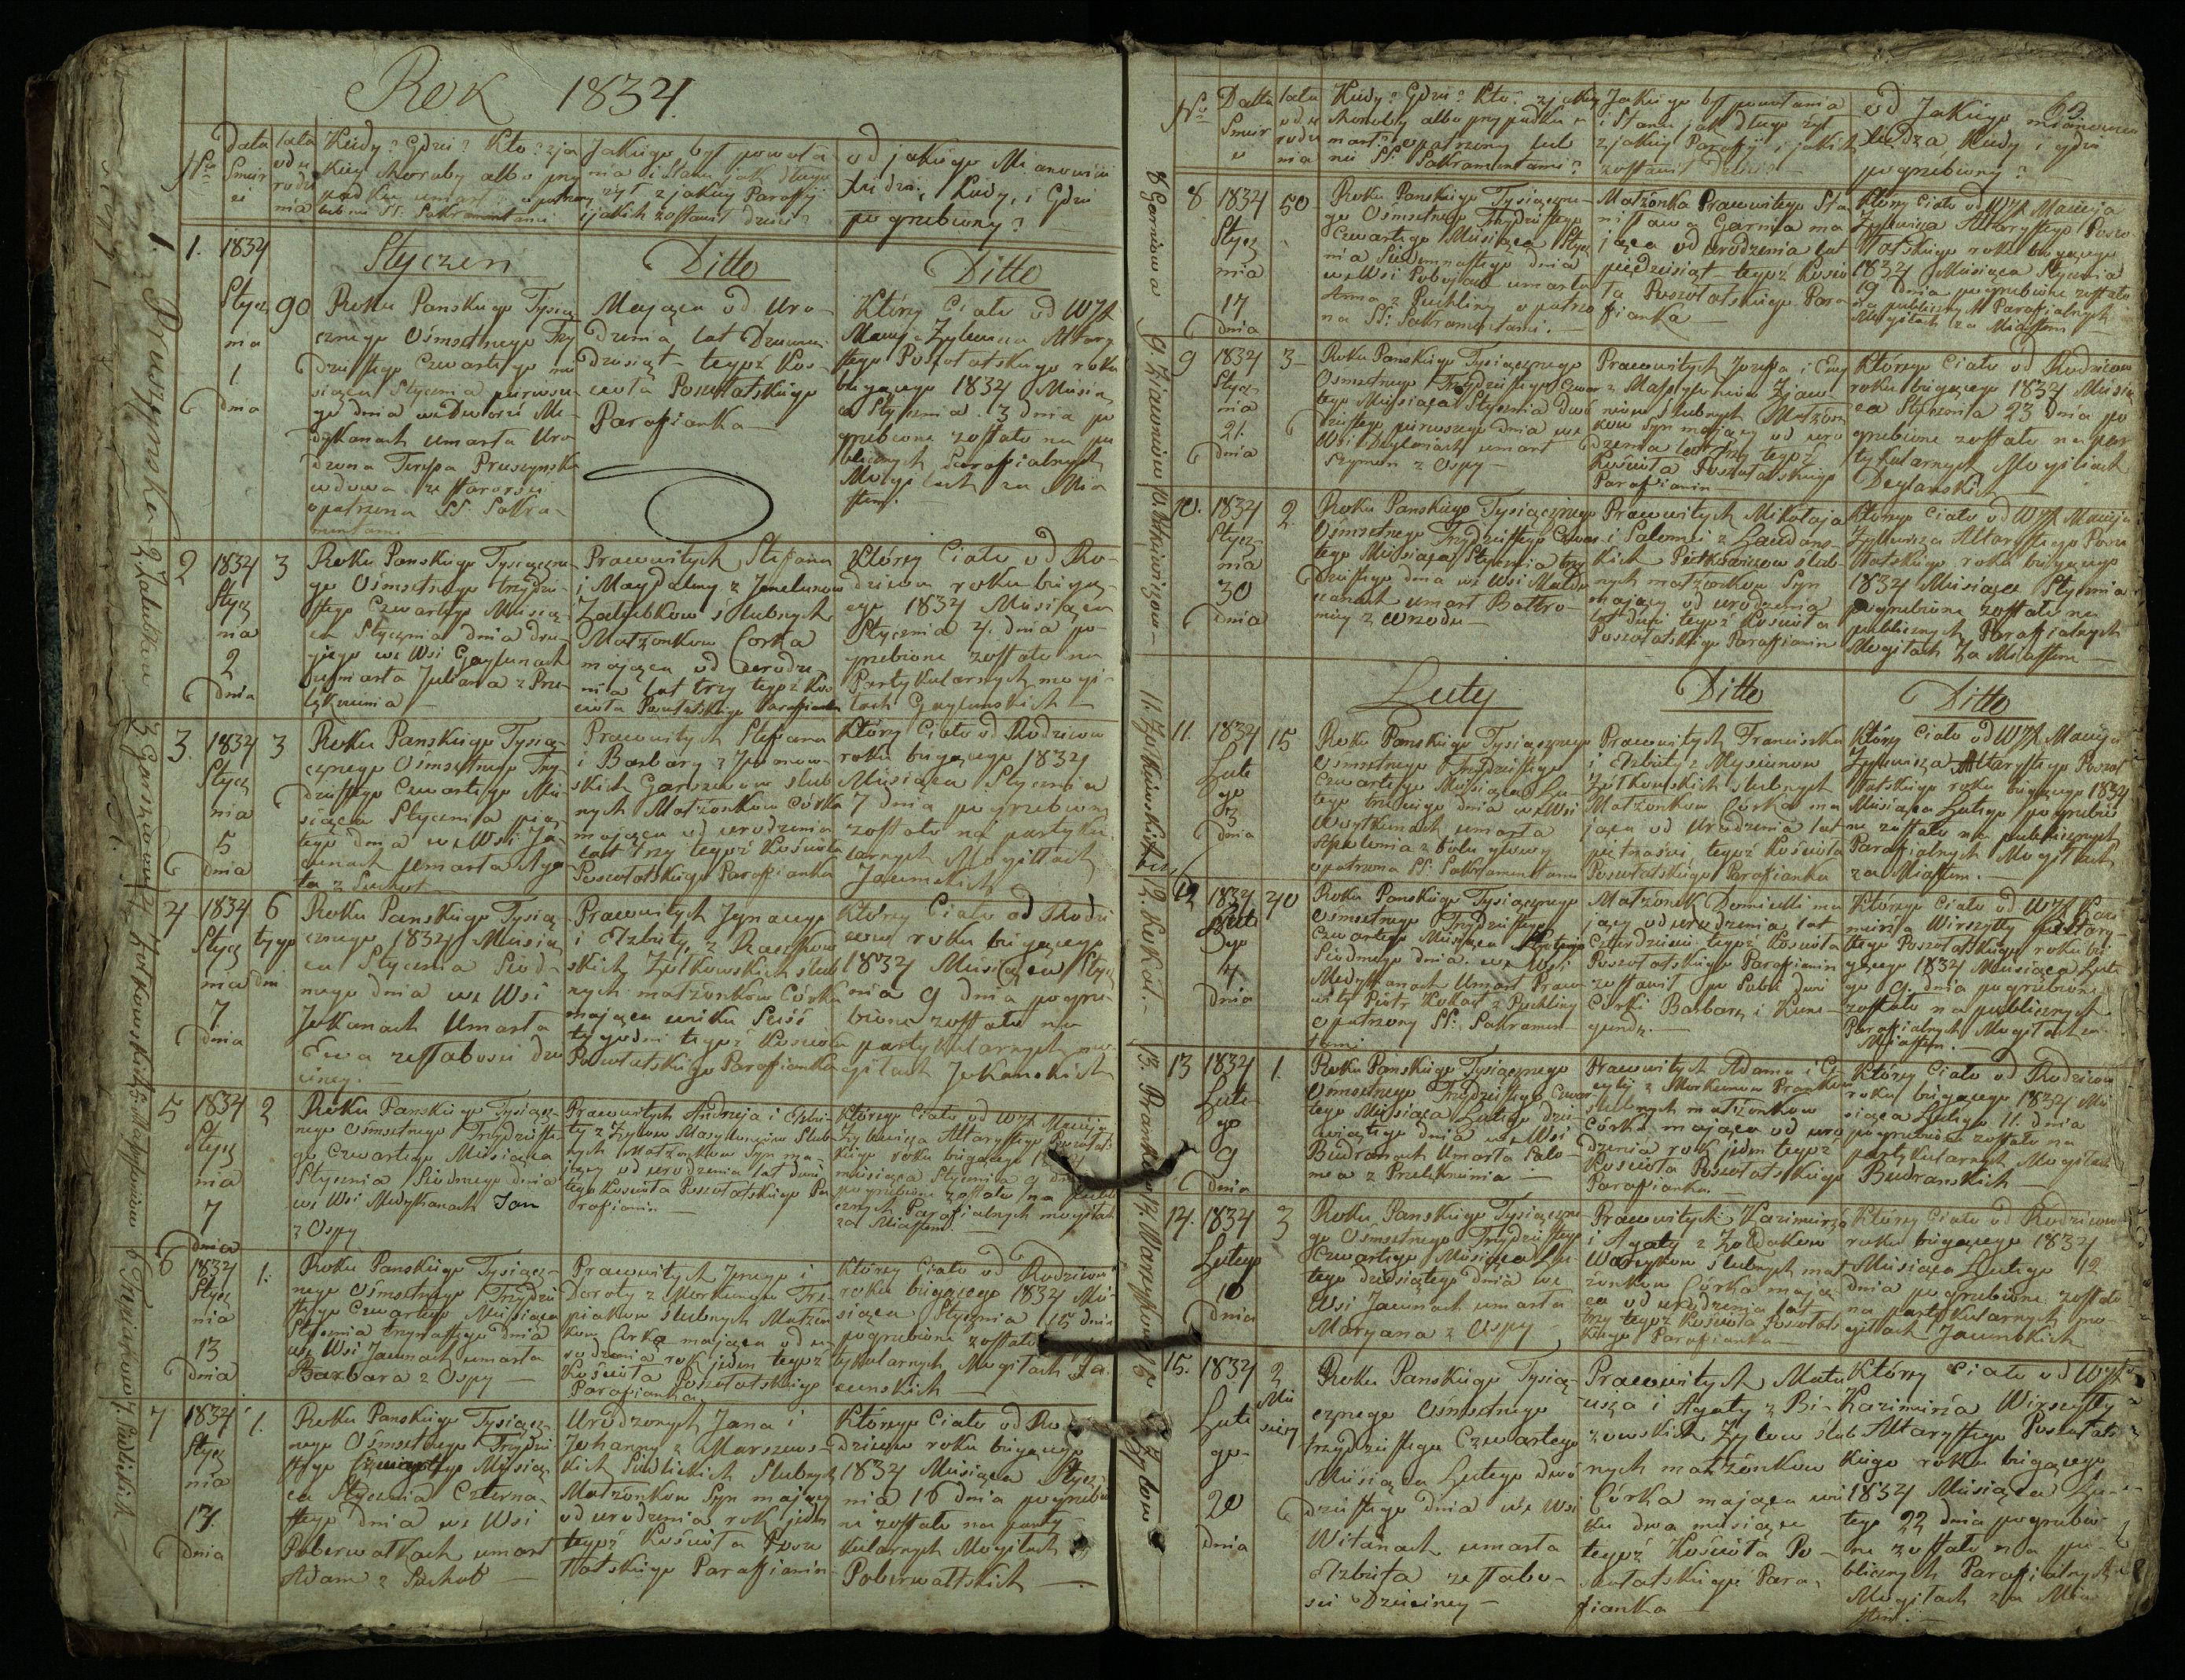 Rok 1834.
Nro
Data
Smier
ci
lata
od u
rodze
nia
Kiedy? Gdzie? Kto? z ja
kiey choroby albo przy
padku umarł? opatrzony
lub nie SS. Sakramentami
Jakiego był powoła
nia i stanu jak długo
żył z jakiey Paraffij
i jakich zostawił dzieci?
od jakiego Mianowicie
Xiędza, Kiedy, i Gdzie
pogrzebiony?
1.
1834
Stycz
nia
1
dnia
90
Styczeń
Roku Panskiego Tysią
cznego Ósmsetnego Trzy
dziestego Czwartego mie
siąca Stycznia pierwsze
go dnia we Dworze Me
dykanach umarła Uro
dzona Teressa Pruszynska
wdowa ze starosci
opatrzona SS. Sakra-
mentami
Ditto
Mająca od Uro-
dzenia lat Dziewię
dziesiąt tegoż Koś-
cioła Poszołatskiego
Parafianka
Ditto
Którey Ciało od WJX
Macieja Zylewicza Altary
stego Poszołatskiego roku
biegącego 1834 Miesią
ca Stycznia 3 dnia po
grzebione zostało na pu
blicznych Parafialnych
Mogiłach za Mia
stem.
1. Pruszynska
2
1834
Stycz
nia
2
dnia
3
Roku Panskiego Tysiączne
go Ósmsetnego trzydzie
stego Czwartego Miesią-
ca Stycznia dnia dru-
giego we Wsi Gaylunach
umarła Juliana z Prze-
lęknienia
Prawowitych Stefana
i Magdaleny z
slubnych
Matżonkow Corka
mająca od urodze
nia lat trzy tegoż Koś
cioła Poszołatskiego Parafianka
Którey Ciało od Ro-
dzicow roku biegą-
cego 1834 Miesiąca
Stycznia 4. dnia po-
grzebione zostało na
Partykularnych mogi-
łach Gaylunskich
3.
1834
Stycz
nia
5
dnia
3
Roku Pańskiego Tysią-
cznego Ósmsetnego Trzy
dziestego Czwartego Mie
siąca Stycznia pią-
tego dnia we Wsi Ja
cunach umarła Aga
ta z Suchot
Prawowitych Stefana
i Barbary z
skich slub
nych Małżonkow Córka
mająca od urodzenia
lat trzy tegoż Kościoła
Poszołatskiego Parafianka
Którey Ciało od Rodzicow
roku biegącego 1834
Miesiąca Stycznia
7 dnia pogrzebione
zostało na partyku
larnych Mogiłach
4
1834
Stycz
nia
7
dnia
6
tygo
dni
Roku Panskiego Tysią
cznego 1834 Miesią
ca Stycznia Siód-
mego dnia we Wsi
Jokanach Umarła
Ewa ze słabosci dzie
cinney.
Prawowitych Jgnacego
i Elzbiety z
skich Zołkowskich slub
nych małżonkow Córka
mająca wieku Sześć
tygodni tegoż Kościoła
Poszołatskiego Parafianka
Którey Ciało od Rodzi
cow roku biegącego
1834 Miesiąca Stycz
nia 9 dnia pogrze
bione zostało na
partykularnych mo
giłach Jokanskich
5
1834
Stycz
nia
7
dnia
2
Roku Panskiego Tysiącz-
nego Ósmsetnego Trzydzieste
go Czwartego Miesiąca
Stycznia Siodmego dnia
we Wsi Medykanach Jan
z Ospy
Prawowitych Andrzeja i Elzbie
ty z Slub
nych Małżonkow Syn ma-
jący od urodzenia lat dwie
tegoż Kościoła Poszołatskiego Pa
rafianin
Którego Ciało od WJX Macieja
Zylewicza Altarystego Poszołats
kiego roku biegącego 1834
miesiąca Stycznia 9 dnia
pogrzebione zostało na publi
cznych Parafialnych mogiłach
za Miastem
6
1834
Stycz
nia
13
dnia
1.
Roku Panskiego Tysiącz-
nego Ósmsetnego Trzydzie
stego Czwartego Miesiąca
Stycznia trzynastego dnia
we Wsi Jacunach umarła
Barbara z Ospy
Prawowitych Jerzego i
Doroty z
slubnych Małżon
kow Corka mająca od u
rodzenia rok jeden tegoż
Kościoła Poszołatskiego
Parafianka
Którey Ciało od Rodzicow
roku biegącego 1834 Mie
siąca Stycznia 15 dnia
pogrzebione zostało
tykularnych Mogiłach Ja
cunskich
7
1834
Stycz
nia
17.
dnia
1.
Roku Panskiego Tysiącz
nego Ósmsetnego Trzydzie
stego Czwartego Miesią
ca Stycznia Czterna-
stego dnia we Wsi
Poberwałkach umarł
Adam z Suchot
Urodzonych Jana i
Johanny z Marszews-
kich Siedlickich Slubnych
Małżonkow Syn mający
od urodzenia rok jeden
tegoż Kościoła Poszo
łatskiego Paraffianin
Którego Ciało od Ro
dzicow roku biegącego
1834 Miesiąca Stycz-
nia 16 dnia pogrzebio
ne zostało na party-
kularnych Mogiłach
Poberwałtskich
63
Nro
Datta
Smier
ci
lata
od u
rodze
nia
Kiedy? Gdzie? Kto? z jakiey
choroby albo przypadku u
marł? opatrzony lub
nie SS. Sakramentami?
Jakiego był powołania
i Stanu jak długo żył
z jakiey Parafij i jakich
zostawił dzieci?
od Jakiego mianowicie
Xiędza, kiedy i gdzie
pogrzebiony?
8
1834
Stycz
nia
17
dnia
50
Roku Panskiego Tysiączne-
go Ósmsetnego Trzydziestego
Czwartego Miesiąca Stycz
nia Siedemnastego dnia
we Wsi umarła
Anna z Puchliny opatrzo
na SS. Sakramentami.
Małżonka Prawowitego Sta
nisława Garnia ma
jąca od urodzenia lat
pięćdziesiąt tegoż Koscio
ła Poszołatskiego Para
fianka
Którey Ciało od WJX Macieja
Zylewicza Altarystego Poszo
łatskiego roku biegącego
1834 Miesiąca Stycznia
19 dnia pogrzebione zostało
na publicznych Parafialnych
Mogiłach za Miastem
9
1834
Stycz-
nia
21.
dnia
3
Roku Panskiego Tysiącznego
Ósmsetnego Trzydziestego Czwar
tego Miesiąca Stycznia Dwó
dziestego pierwszego dnia we
Wsi Deglaniach umarł
Szymon z Ospy
Prawowitych Jozefa i Ewy
z
slubnych Małżon
kow Syn mający od uro
dzenia lat trzy tegoż
Kościoła Poszołatskiego
Parafianin
Którego Ciało od Rodzicow
roku biegącego 1834 Miesią
ca Stycznia 23 dnia po
grzebione zostało na par
tykularnych Mogiłach
Deglanskich
10.
1834
Stycz
nia
30
dnia
2.
Roku Panskiego Tysiącznego
Ósmsetnego Trzydziestego Czwar
tego Miesiąca Stycznia trzy
dziestego dnia we Wsi
umarł Bałtro-
miey z wrzodu
Prawowitych Mikołaja
i Salomei z
kich slub-
nych małżonkow Syn
mający od urodzenia
lat dwie tegoż Kościoła
Poszołatskiego Parafianin
Którego Ciało od WJX Macieja
Zylewicza Altarystego Poszo
łatskiego roku biegącego
1834 Miesiąca Stycznia
pogrzebione zostało na
publicznych Parafialnych
Mogiłach Za Miastem
11.
1834
Lute
go
3
dnia
15
Luty
Roku Panskiego Tysiącznego
Ósmsetnego Trzydziestego
Czwartego Miesiąca Lu-
tego trzeciego dnia we Wsi
Woytkunach umarła
z bolu głowy
opatrzona SS. Sakramentami
Ditto
Prawowitych Franciszka
i Elzbiety z
Zołkowskich slubnych
Małżonkow Córka ma
jąca od Urodzenia lat
piętnaście tegoż Kościoła
Poszołatskiego Parafianka
Ditto
Którey Ciało od WJX Macieja
Zylewicza Altarystego Poszo
łatskiego roku biegącego 1834
Miesiąca Lutego pogrzebio
ne zostało na publicznych
Parafialnych Mogiłach
za Miastem.
12
1834
Lute
go
7
dnia
40
Roku Panskiego Tysiącznego
Ósmsetnego Trzydziestego
Czwartego Miesiąca Lutego
Siodmego dnia we Wsi
Medykanach Umarł Prawo-
wity Piotr Kokat z Puchliny
opatrzony SS. Sakramen-
tami
Małżonek Domicelli ma
jący od urodzenia lat
Czterdzieści tegoż Kościoła
Poszołatskiego Parafianin
zostawił po Sobie dwie
Córki Barbarę i Kune-
gundę.
Którego Ciało od WJX Kazi
mierza Wirszytty Altary-
stego Poszołatskiego roku bie
gącego 1834 Miesiąca Lute
go 9. dnia pogrzebione
zostało na publicznych
Parafialnych Mogiłach za
Miastem.
13
1834
Lute-
go
9
dnia
1.
Roku Panskiego Tysiącznego
Ósmsetnego Trzydziestego Czwar
tego Miesiąca Lutego dzie
wiątego dnia we Wsi
Budranach Umarła Salo-
mea z Przelęknienia
Prawowitych Adama i Ce
cylij z
slubnych małżonkow
Córka mająca od uro
dzenia rok jeden tegoż
Kościoła Poszołatskiego
Parafianka
Którey Ciało od Rodzicow
roku biegącego 1834 Mie
siąca Lutego 11. dnia
pogrzebione zostało na
partykularnych Mogiłach
Budranskich
14.
1834
Lutego
10
dnia
3
Roku Panskiego Tysiączne
go Ósmsetnego Trzydziestego
Czwartego Miesiąca Lu
tego dziesiątego dnia we
Wsi Jacunach umarła
Maryana z Ospy
Prawowitych Kazimierza
i Agaty z
slubnych mał
żonkow Córka mają
ca od urodzenia lat
trzy tegoż Kościoła Poszołats
kiego Parafianka
Którey Ciało od Rodzicow
roku biegącego 1834
Miesiąca Lutego 12
dnia pogrzebione zostało
na partykularnych mo-
giłach Jacunskich
15.
1834
Lute
go
20
dnia
2
Mie
sięcy
Roku Panskiego Tysią-
cznego Ósmsetnego
trzydziestego Czwartego
Miesiąca Lutego dwó
dziestego dnia we Wsi
Witanach umarła
Elzbieta ze słabo-
sci Dziecinney
Prawowitych Mateu
rza i Agaty z Bi-
zowskich Zylow slub
nych małżonkow
Córka mająca wie
ku dwa miesiące
tegoż Kościoła Po-
szołatskiego Para-
fianka
Którey ciało od WJX
Kazimierza Wirszytty
Altarystego Poszołats
kiego roku biegącego
1834 Miesiąca Lu-
tego 22 dnia pogrzebio-
ne zostało na pu-
blicznych Parafialnych
Mogiłach za Mia
stem.